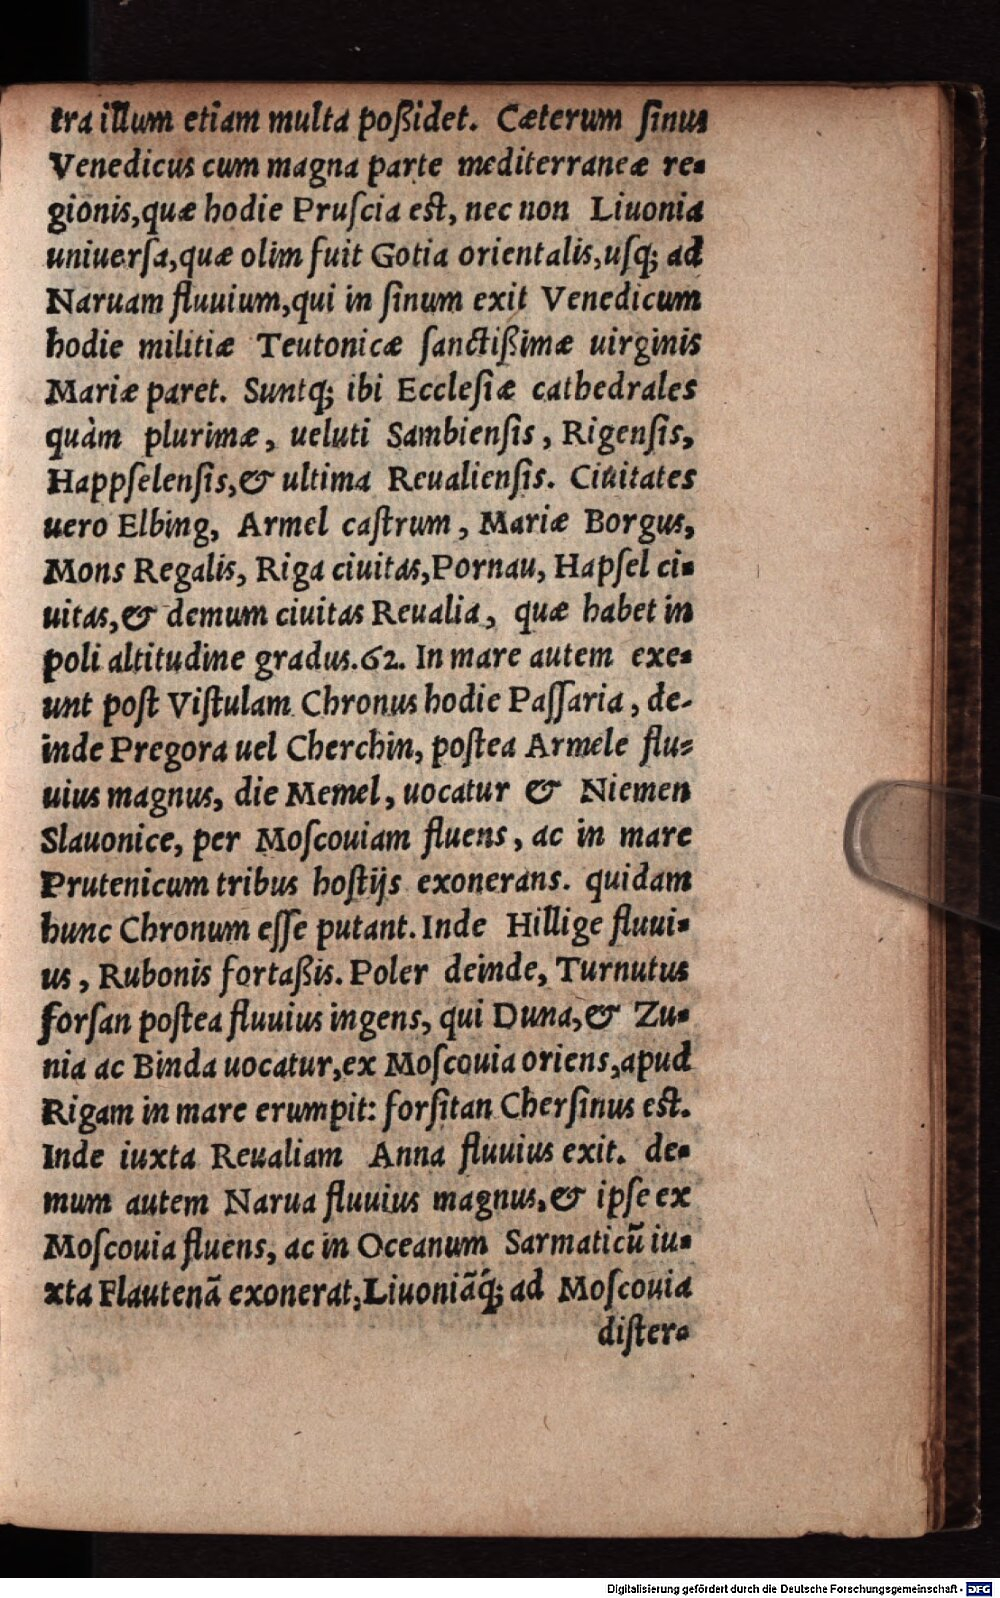 tra illum etiam multa poßidet. Cæterum ſinus
Venedicus cum magna parte mediterraneæ re-
gionis, quæ hodie Pruſcia est, nec non Liuonia
uniuerſa, quæ olim fuit Gotia orientalis, uſq; ad
Naruam fluuium, qui in ſinum exit Venedicum
hodie militiæ Teutonicæ ſanctißimæ uirginis
Mariæ paret. Suntq; ibi Eccleſiæ cathedrales
quàm plurimæ, ueluti Sambienſis, Rigenſis,
Happſelenſis, & ultima Reualienſis. Ciuitates
uero Elbing, Armel caſtrum, Mariæ Borgus,
Mons Regalis, Riga ciuitas, Pornau, Hapſel ci-
uitas, & demum ciuitas Reualia, quæ habet in
poli altitudine gradus.62. In mare autem exe-
unt poſt Viſtulam Chronus hodie Paſſaria, de-
inde Pregora uel Cherchin, poſtea Armele flu-
uius magnus, die Memel, uocatur & Niemen
Slauonice, per Moſcouiam fluens, ac in mare
Prutenicum tribus hoſtijs exonerans. quidam
hunc Chronum eſſe putant. Inde Hillige fluui-
us, Rubonis fortaßis. Poler deinde, Turnutus
forſan poſtea fluuius ingens, qui Duna, & Zu-
nia ac Binda uocatur, ex Moſcouia oriens, apud
Rigam in mare erumpit: forſitan Cherſinus eſt.
Inde iuxta Reualiam Anna fluuius exit. de-
mum autem Narua fluuius magnus, & ipſe ex
Moſcouia fluens, ac in Oceanum Sarmaticū iu-
xta Flautenā exonerat, Liuoniāq́; ad Moſcouia
diſter-
Digitalisierung gefördert durch die Deutsche Forschungsgemeinschaft - DFG